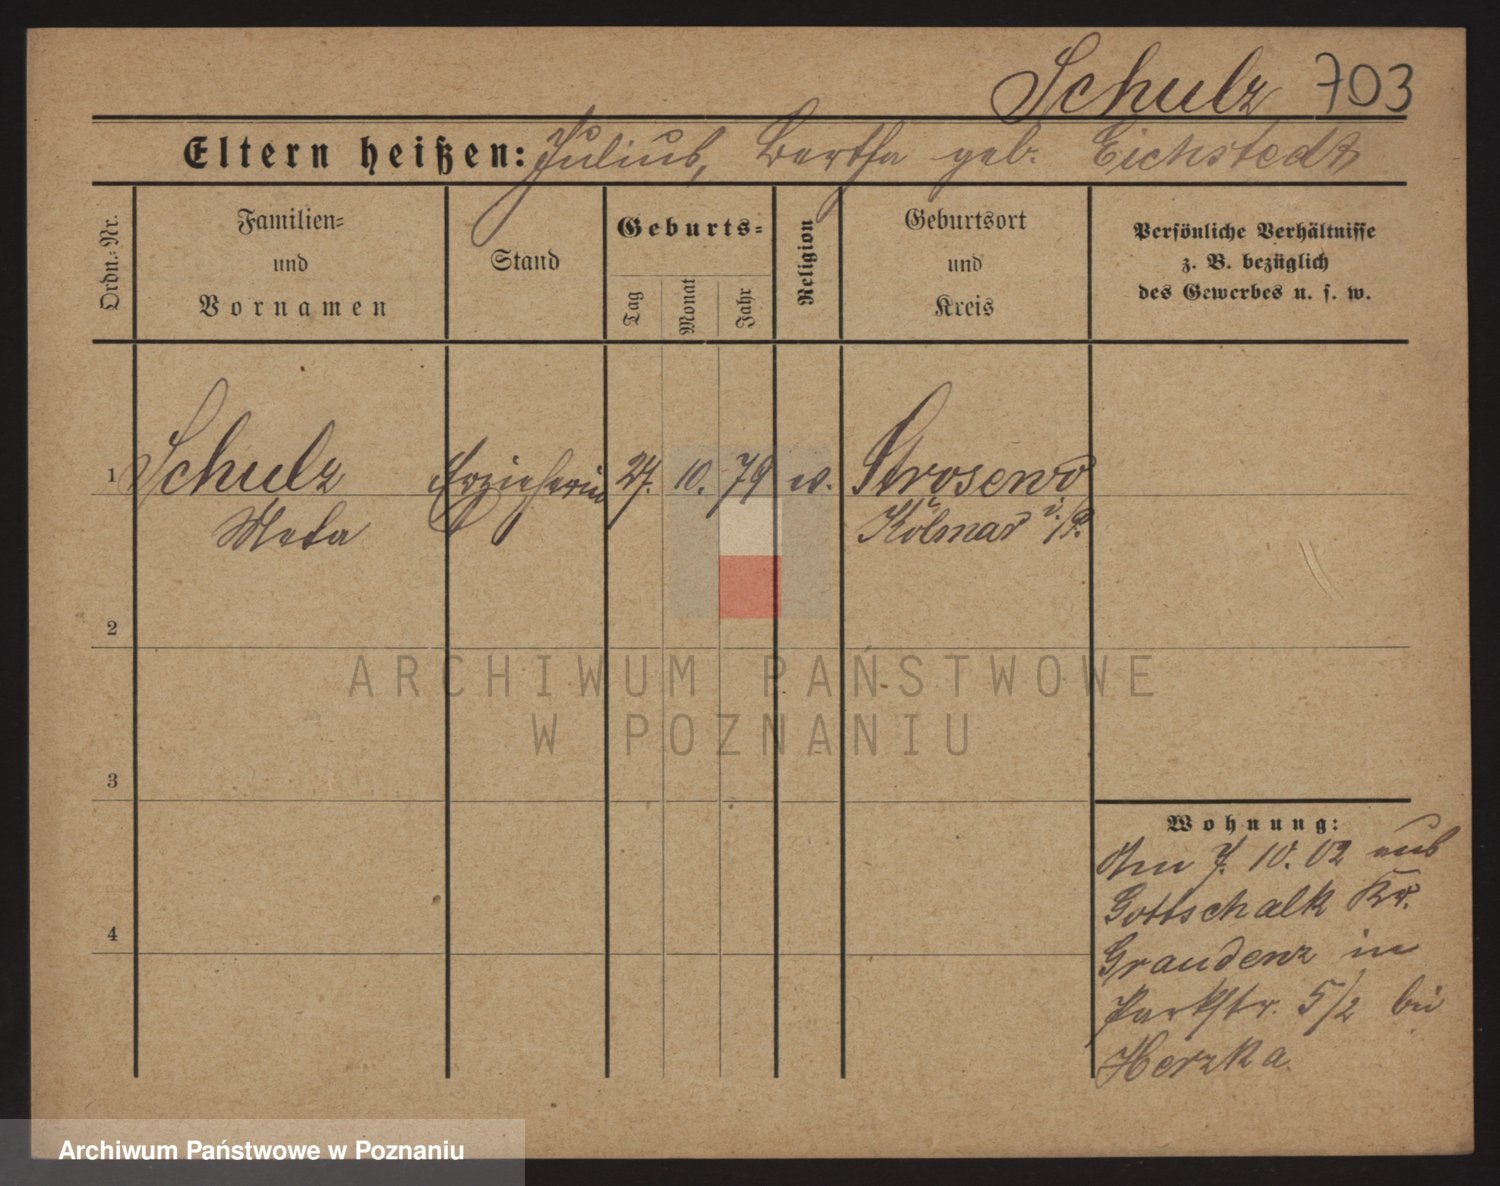 Schulz 703
Eltern heißen: Julius, Bertha geb. Eichstedt
Ordn.-Nr.
Familien-
und
Vornamen
Stand
Geburts-
Tag
Monat
Jahr
Religion
Geburtsort
und
Kreis
Persönliche Verhältnisse
z. B. bezüglich
des Gewerbes u. s. w.
1 Schulz Erzieherin 27. 10. 79 ev. Strosewo
Meta Kolmar i/P.
2
3
4
ARCHIWUM PAŃSTWOWE
W POZNANIU
Wohnung:
Am 7. 10. 02 aus
Gottschalk Kr.
Graudenz in
Parkstr. 5/2 bei
Herzka.
Archiwum Państwowe w Poznaniu